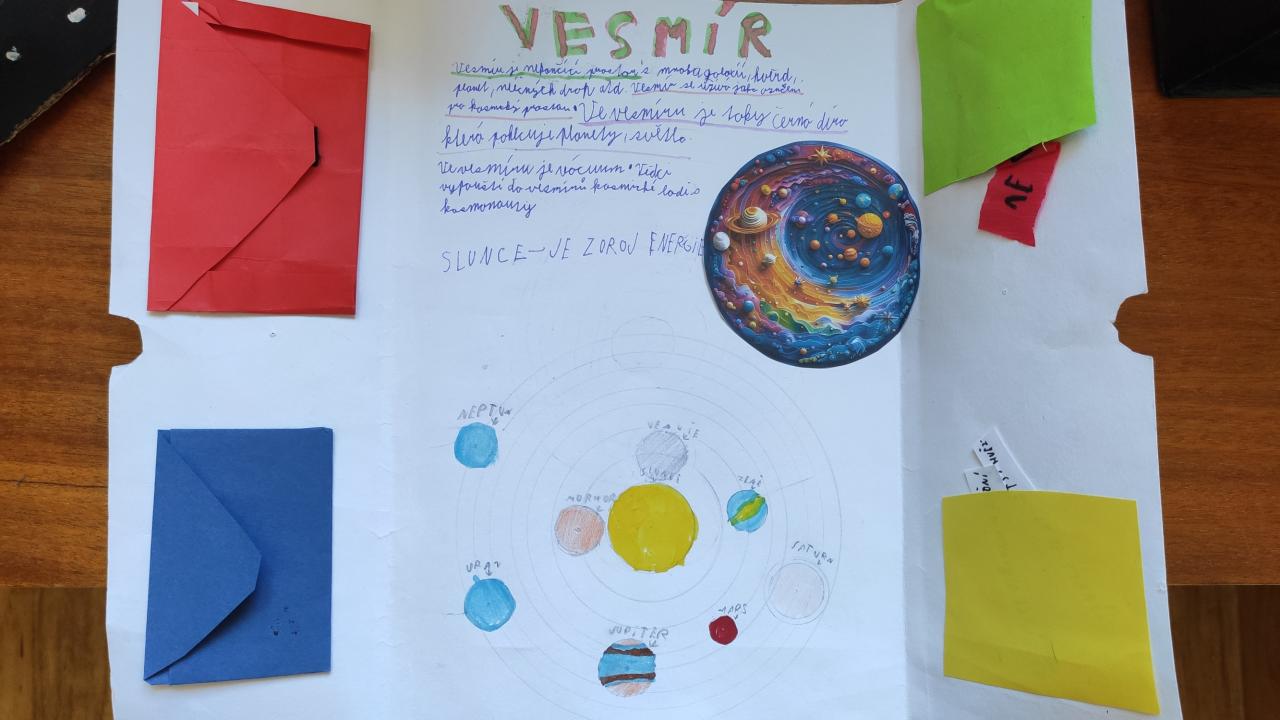 VESMÍR
Vesmír je nekončící prostor s mnoha galaxií, hvězd,
planet, mléčných drah atd. Vesmír se užívá jako označení
pro kosmický prostor. Ve vesmíru je taky černá díra
která pohlcuje planety, světlo.
Ve vesmíru je vácuum. Vědci
vypouští do vesmíru kosmické lodi s
kosmonauty
SLUNCE - JE ZDROJ ENERGIE
NEPTUN
VENUŠE
SLUNCE
ZEMĚ
MERKUR
SATURN
URAN
MARS
JUPITER
VE